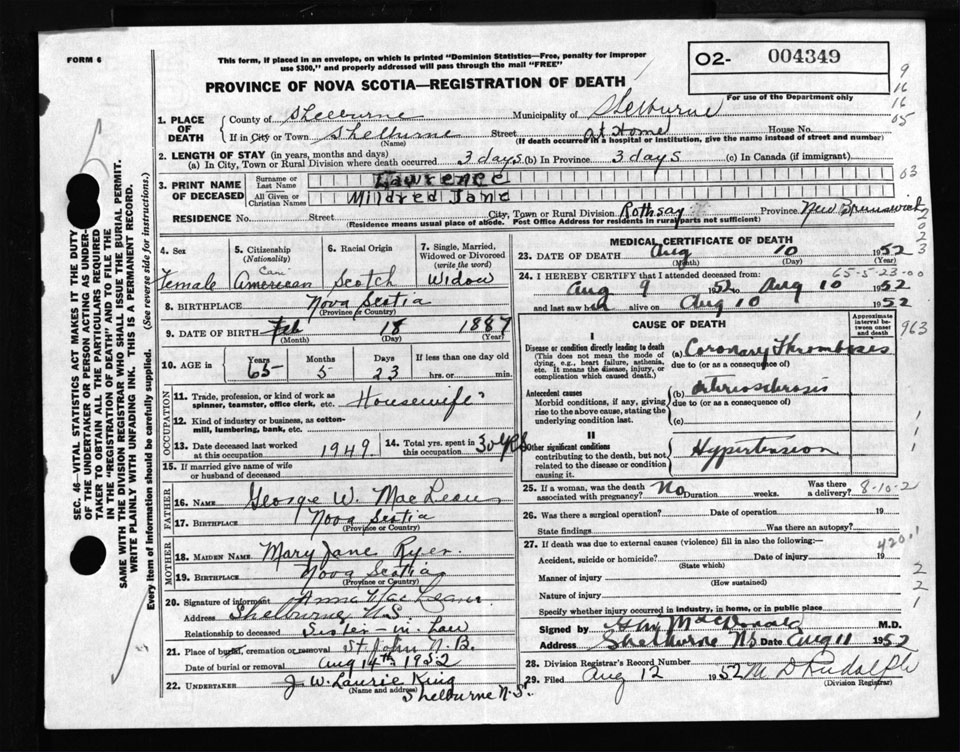 FORM 6
This form, if placed in an envelope, on which is printed "Dominion Statistics—Free, penalty for improper
use $300," and properly addressed will pass through the mail "FREE"
02- 004349
For use of the Department only
PROVINCE OF NOVA SCOTIA—REGISTRATION OF DEATH
9
16
16
05
1. PLACE OF DEATH
County of Shelburne Municipality of Shelburne
If in City or Town Shelburne Street At Home House No.
(Name) (If death occurred in a hospital or institution, give the name instead of street and number)
2. LENGTH OF STAY (in years, months and days)
(a) In City, Town or Rural Division where death occurred 3 days (b) In Province 3 days (c) In Canada (if immigrant)
03
3. PRINT NAME OF DECEASED
Surname or Last Name Lawrence
All Given or Christian Names Mildred Jane
RESIDENCE No. Street City, Town or Rural Division Rothsay Province New Brunswick
(Residence means usual place of abode. Post Office Address for residents in rural parts not sufficient)
4. Sex Female
5. Citizenship (Nationality) Can American
6. Racial Origin Scotch
7. Single, Married, Widowed or Divorced (write the word) Widow
8. BIRTHPLACE Nova Scotia
(Province or Country)
9. DATE OF BIRTH Feb 18 1887
(Month) (Day) (Year)
10. AGE in Years 65 Months 5 Days 23 If less than one day old hrs. or min.
OCCUPATION
11. Trade, profession, or kind of work as spinner, teamster, office clerk, etc. Housewife
12. Kind of industry or business, as cotton-mill, lumbering, bank, etc.
13. Date deceased last worked at this occupation 1949
14. Total yrs. spent in this occupation 30 yrs
15. If married give name of wife or husband of deceased
FATHER
16. NAME George W. MacLean
17. BIRTHPLACE Nova Scotia
(Province or Country)
MOTHER
18. MAIDEN NAME Mary Jane Ryer
19. BIRTHPLACE Nova Scotia
(Province or Country)
20. Signature of informant Anna MacLean
Address Shelburne N.S
Relationship to deceased Sister-in-Law
21. Place of burial, cremation or removal St John N.B.
Date of burial or removal Aug 14th 1952
22. UNDERTAKER J. W. Laurie King
(Name and address) Shelburne N.S.
MEDICAL CERTIFICATE OF DEATH
23. DATE OF DEATH Aug 10 1952
(Month) (Day) (Year)
65-5-23-00
24. I HEREBY CERTIFY that I attended deceased from:
Aug 9 1952 to Aug 10 1952
and last saw h alive on Aug 10 1952
963
CAUSE OF DEATH
Approximate interval between onset and death
I
Disease or condition directly leading to death
(This does not mean the mode of dying, e.g., heart failure, asthenia, etc. It means the disease, injury, or complication which caused death.)
(a) Coronary Thrombosis
due to (or as a consequence of)
Antecedent causes
Morbid conditions, if any, giving rise to the above cause, stating the underlying condition last.
(b) Arteriosclerosis
due to (or as a consequence of)
(c)
II
Other significant conditions
contributing to the death, but not related to the disease or condition causing it.
Hypertension
25. If a woman, was the death associated with pregnancy? No Duration weeks. Was there a delivery? 8-10-2
26. Was there a surgical operation? Date of operation 19
State findings Was there an autopsy?
27. If death was due to external causes (violence) fill in also the following:— 420.1
Accident, suicide or homicide? Date of injury 19
(State which)
Manner of injury
(How sustained)
Nature of injury
Specify whether injury occurred in industry, in home, or in public place
Signed by MacDonald M.D.
Address Shelburne NS Date Aug 11 1952
28. Division Registrar's Record Number
29. Filed Aug 12 1952 M D Rudolph
(Division Registrar)
SEC. 46—VITAL STATISTICS ACT MAKES IT THE DUTY
OF THE UNDERTAKER OR PERSON ACTING AS UNDER-
TAKER TO OBTAIN ALL THE PARTICULARS REQUIRED
IN THE "REGISTRATION OF DEATH" AND TO FILE THE
SAME WITH THE DIVISION REGISTRAR WHO SHALL ISSUE THE BURIAL PERMIT.
WRITE PLAINLY WITH UNFADING INK. THIS IS A PERMANENT RECORD.
Every item of Information should be carefully supplied. (See reverse side for instructions.)